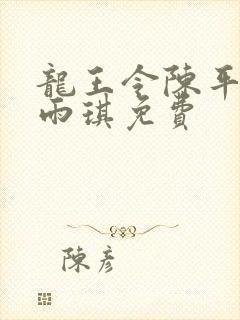 龍王令陳平
雨琪免費
陳彥